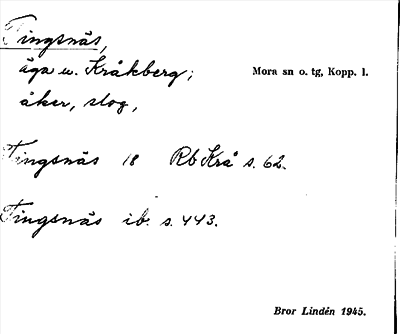 Tingsnäs,
äga u. Kråkberg; Mora sn o. tg, Kopp. l.
åker, slog,
Tingsnäs 18 Rb Krå s. 62.
Tingsnäs ib. s. 443.
Bror Lindén 1945.